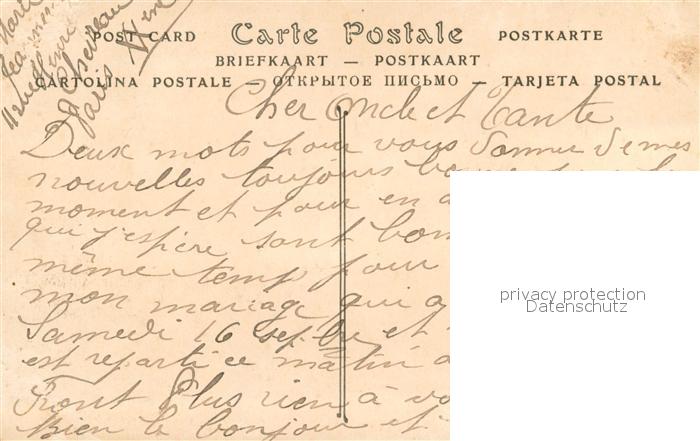 POST CARD Carte Postale POSTKARTE
BRIEFKAART — POSTKAART
CARTOLINA POSTALE — ОТКРЫТОЕ ПИСЬМО — TARJETA POSTAL
Paris
Cher Oncle et Tante
Deux mots pour vous donner de mes
nouvelles toujours
moment et pour en
qui j'espère sont bon
même temp pour
mon mariage qui a
Samedi 16 sepbre et
est reparti ce matin
Front Plus rien à vo
Bien le bonjour et
privacy protection
Datenschutz